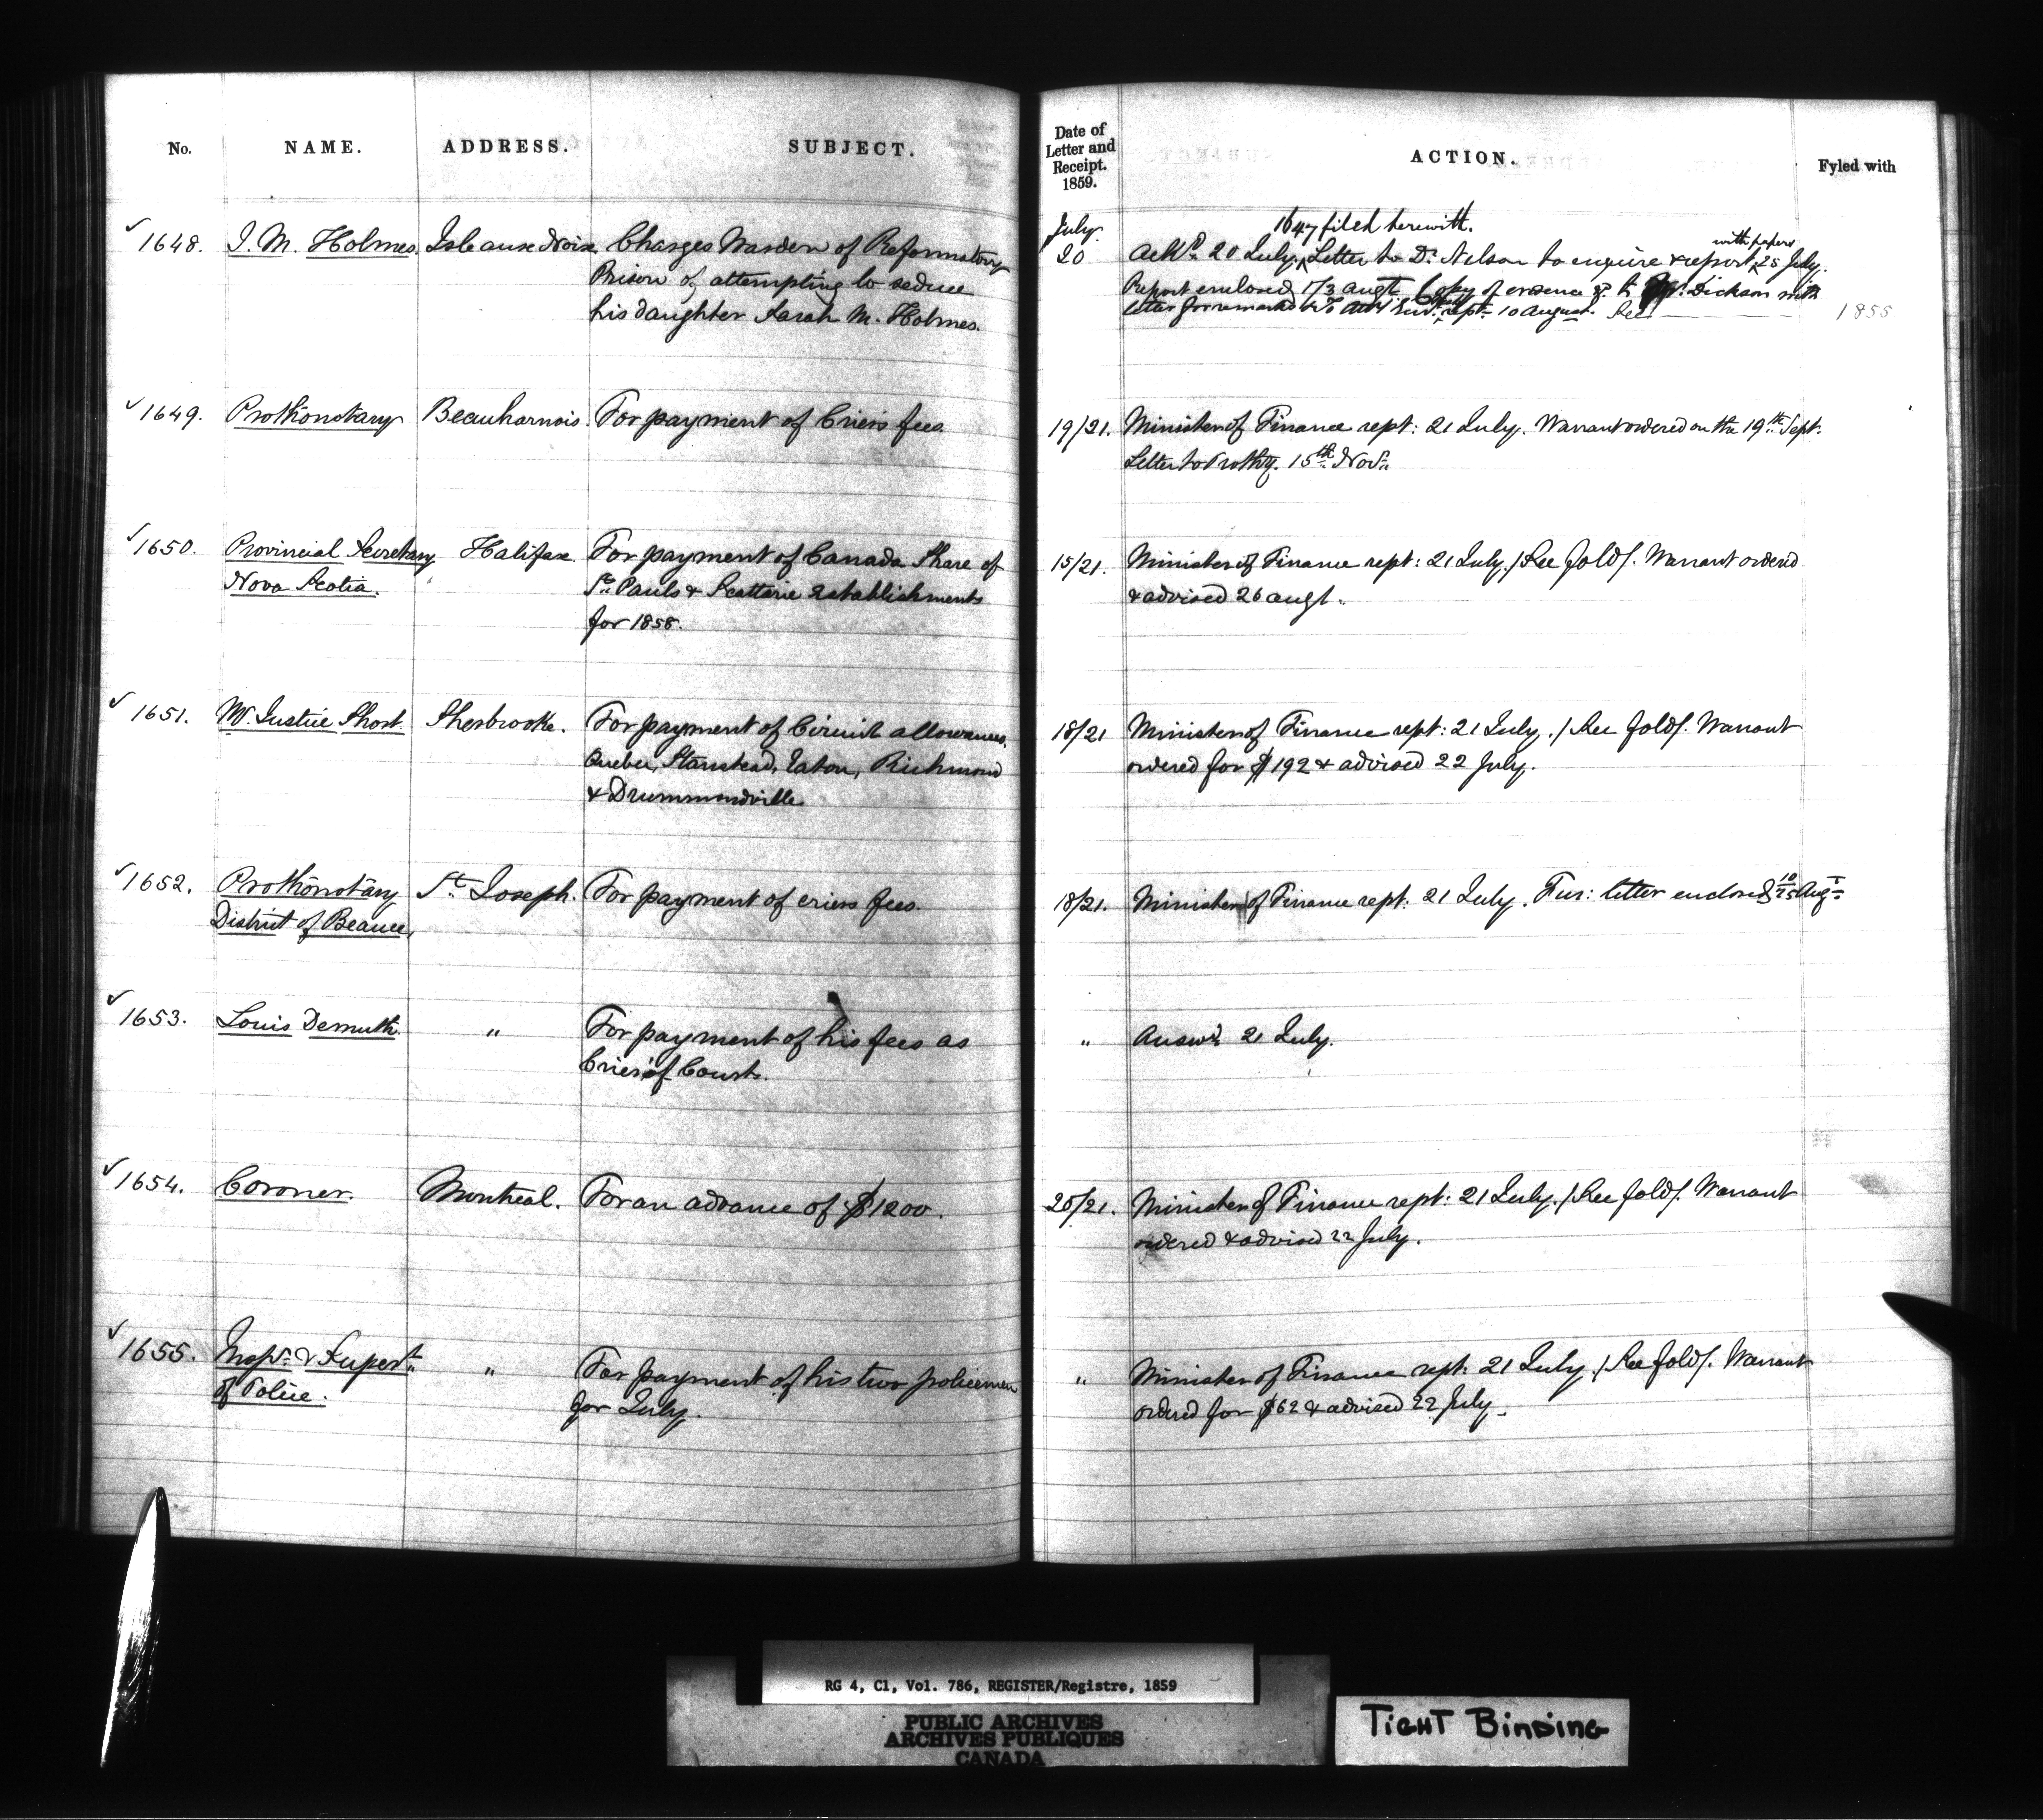 No. NAME. ADDRESS. SUBJECT.
Date of Letter and Receipt. 1859. ACTION. Fyled with
✓ 1648. J. M. Holmes. Isle aux Noix Charges Warden of Reformatory
Prison of attempting to seduce
his daughter Sarah M. Holmes.
July.
1647 filed herewith.
20 Ackd. 20 July. Letter to Dr. Nelson to enquire & report with papers 25 July.
Report enclosed 1/3 Augt. Copy of evidence &c. to Mr. Dickson with
letter for remarks rept. 10 August. See 1855
✓ 1649. Prothonotary Beauharnois. For payment of Criers fees
19/21. Minister of Finance rept: 21 July. Warrant ordered on the 19th Sept.
Letter to Prothy. 15th Nov.
✓ 1650. Provincial Secretary Halifax For payment of Canada Share of
Nova Scotia. St. Pauls & Scatterie Establishments
for 1858.
15/21. Minister of Finance rept: 21 July. / See fold /. Warrant ordered
& advised 26 Augt.
✓ 1651. Mr. Justice Short. Sherbrooke. For payment of Circuit allowances,
Quebec, Stanstead, Eaton, Richmond
& Drummondville
18/21 Minister of Finance rept: 21 July. / See fold /. Warrant
ordered for $192 & advised 22 July.
✓ 1652. Prothonotary St. Joseph. For payment of criers fees
District of Beauce,
18/21. Minister of Finance rept: 21 July. Fur: letter enclosed 18/25 Augt.
✓ 1653. Louis Demuth " For payment of his fees as
Crier of Court.
" Answd. 21 July.
✓ 1654. Coroner. Montreal. For an advance of $1200.
20/21. Minister of Finance rept: 21 July. / See fold /. Warrant
ordered & advised 22 July.
✓ 1655. Inspr. & Supert. " For payment of his two policemen
of Police. for July.
" Minister of Finance rept: 21 July. / See fold /. Warrant
ordered for $62 & advised 22 July.
RG 4, C1, Vol. 786, REGISTER/Registre, 1859
PUBLIC ARCHIVES
ARCHIVES PUBLIQUES
CANADA
TIGHT BINDING